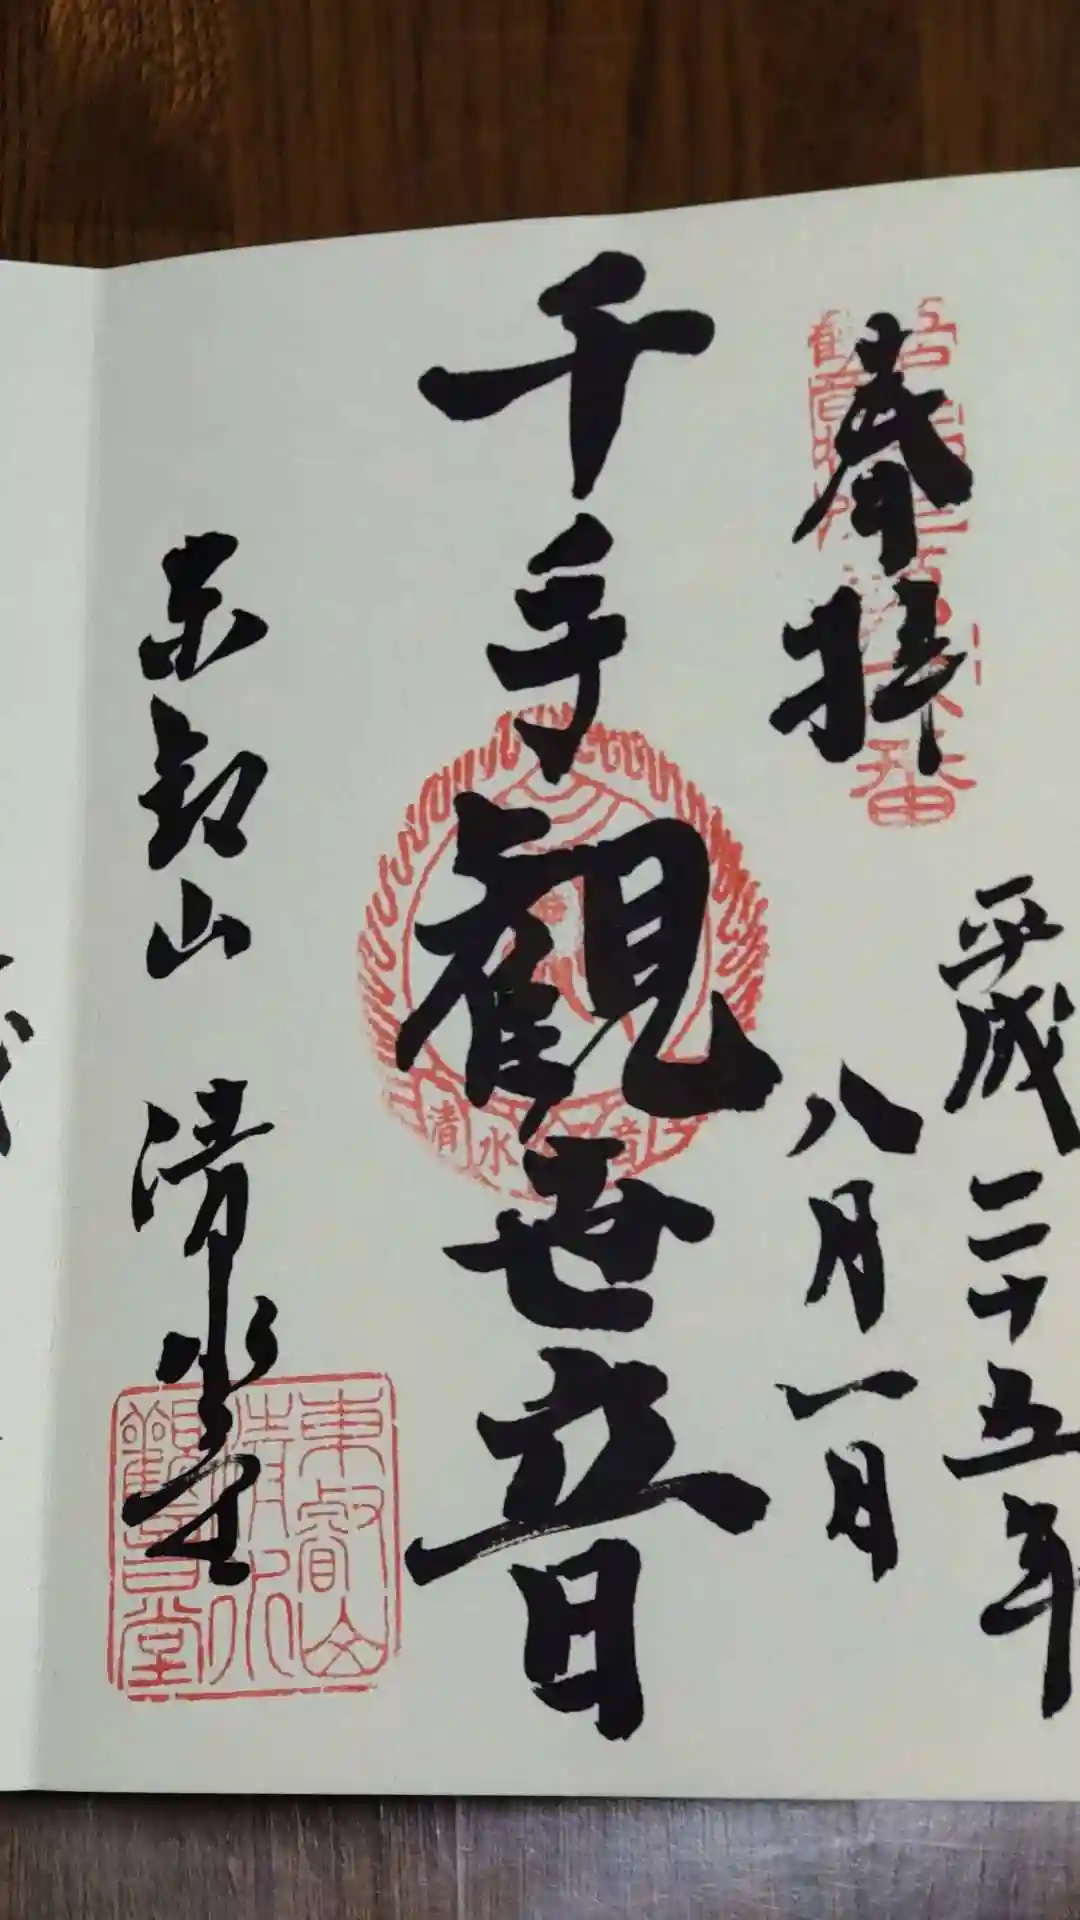 奉拝
平成二十五年
八月一日
千手観世音
東叡山 清水堂
東叡山
清水
觀音堂
清水
音